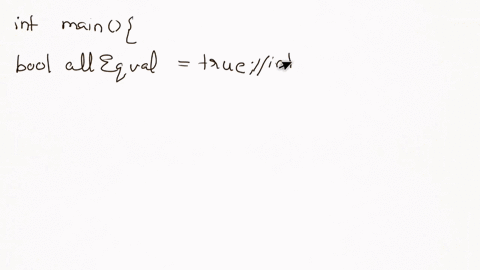 int main(){
bool allEqual = true;//